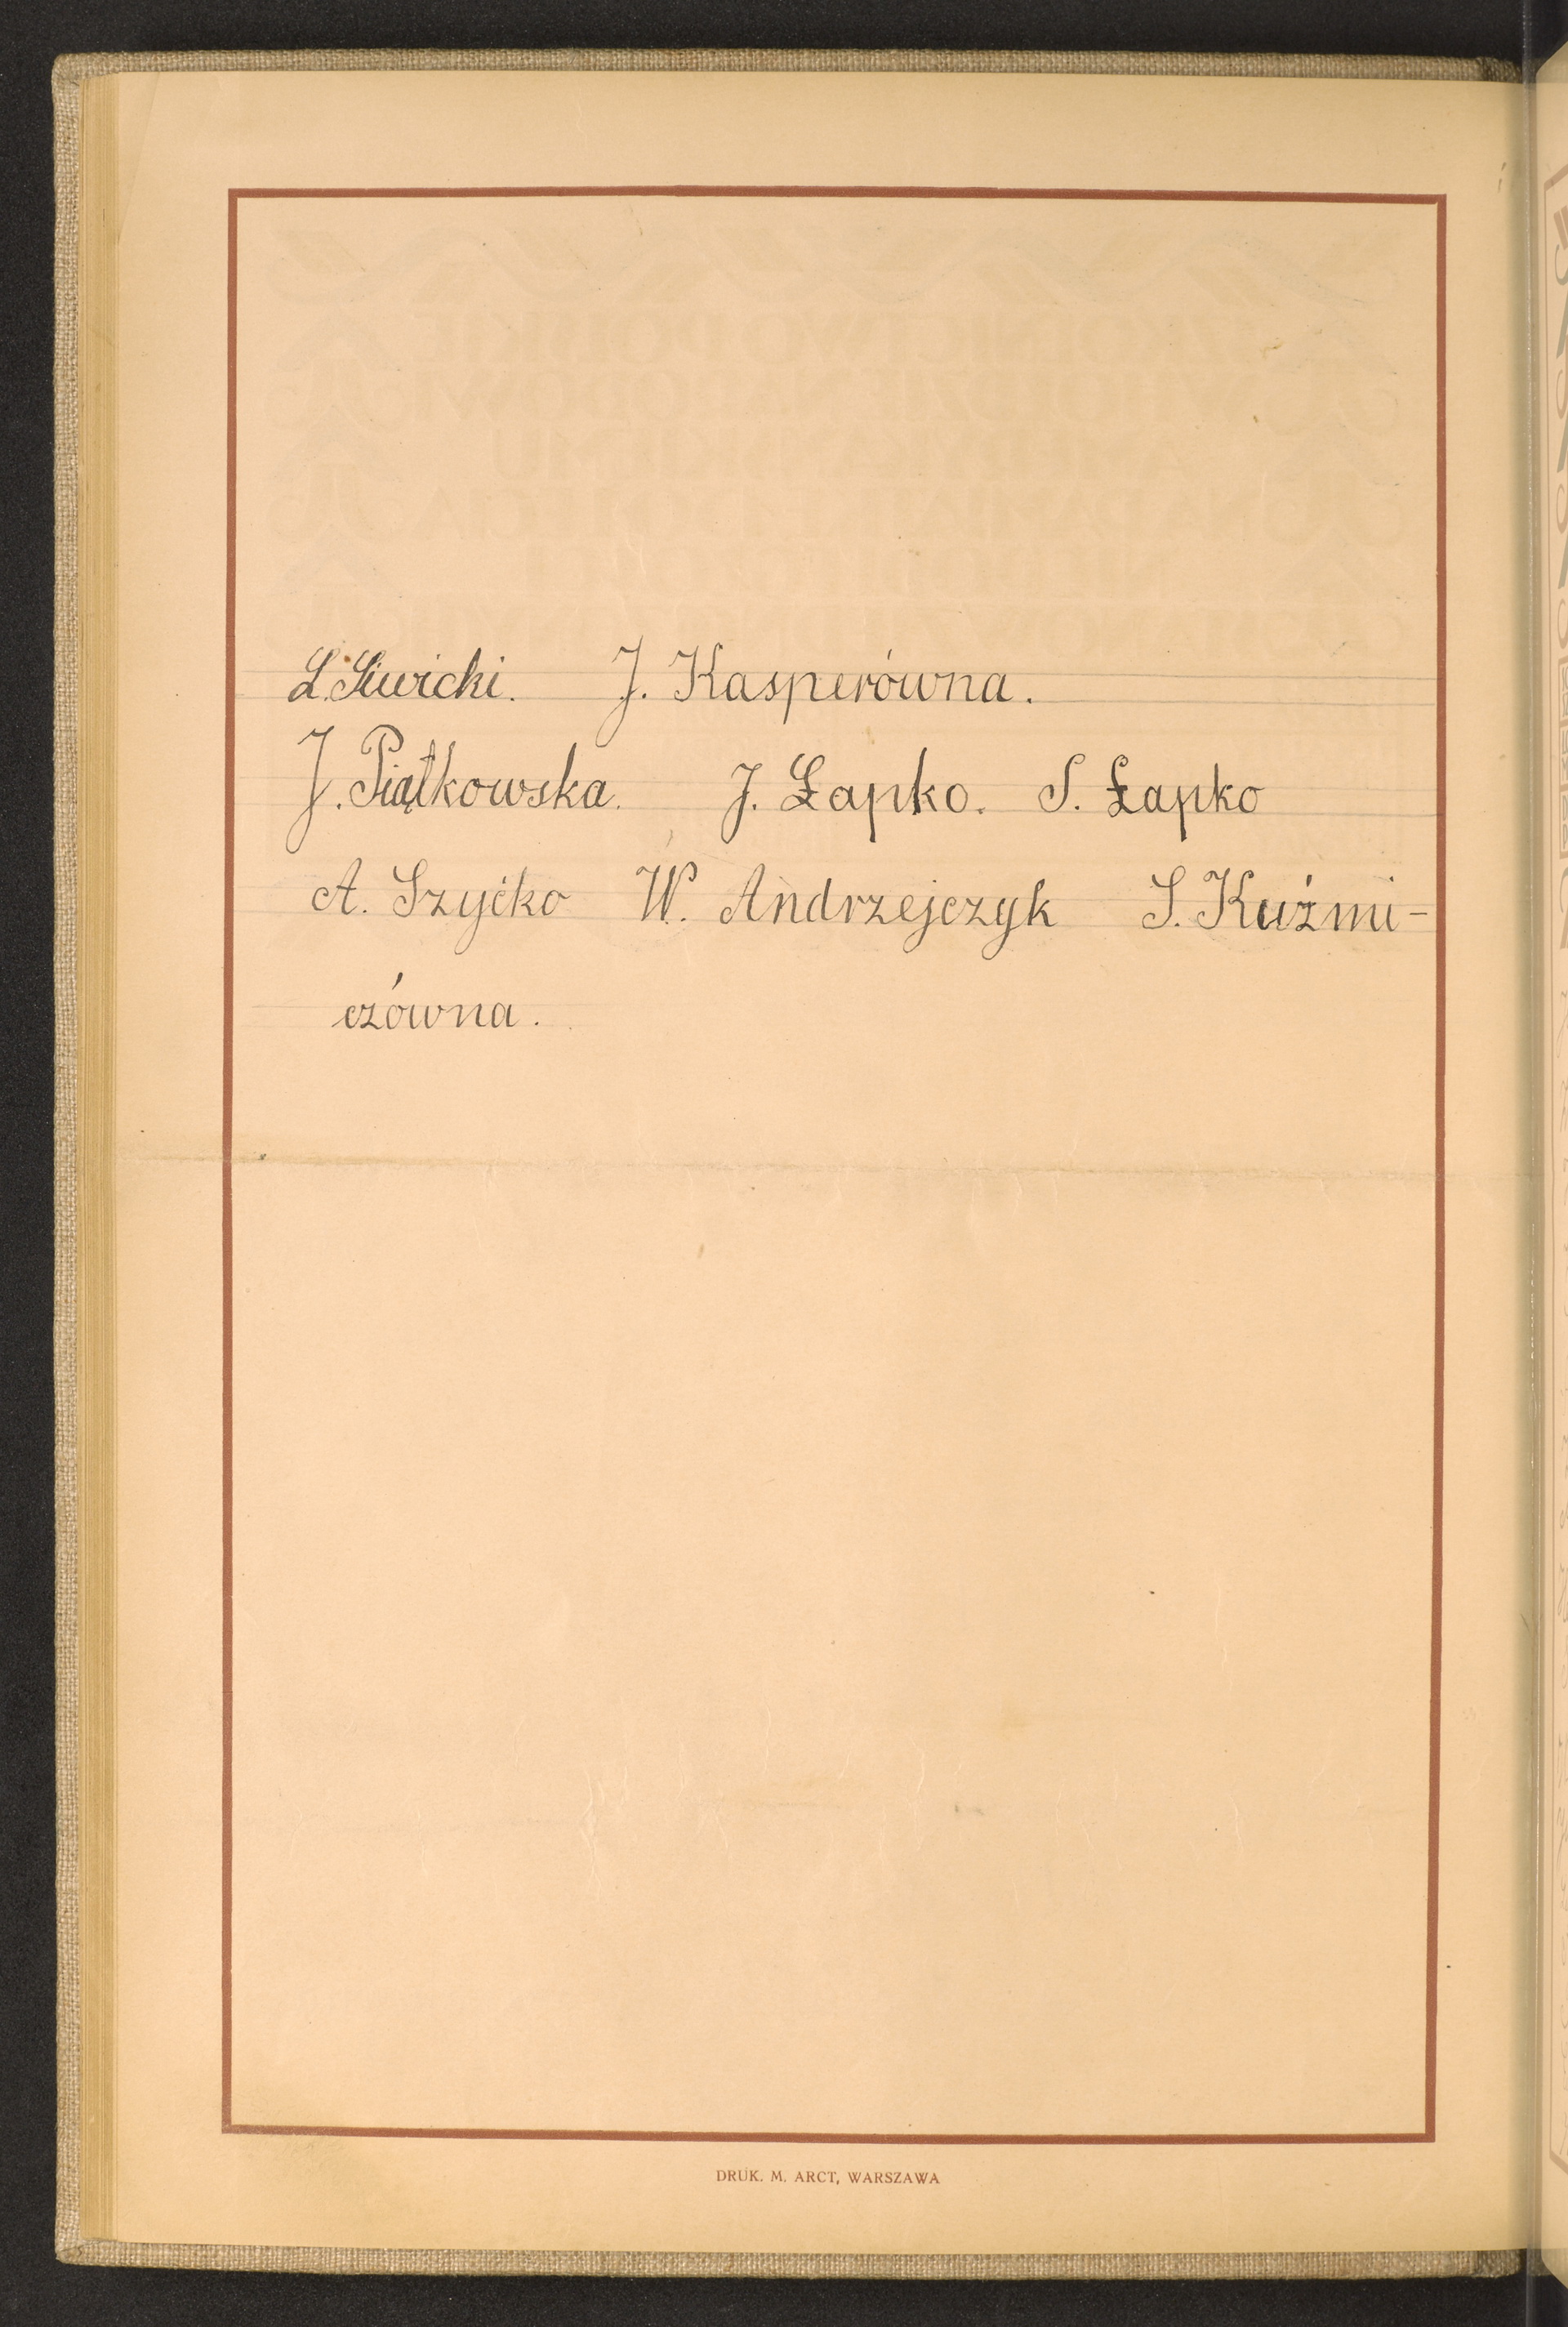 L. Siwicki. J. Kasperówna.
J. Piątkowska. J. Łapko. S. Łapko
A. Szyćko W. Andrzejczyk S. Kuźmi-
czówna.
DRUK. M. ARCT, WARSZAWA